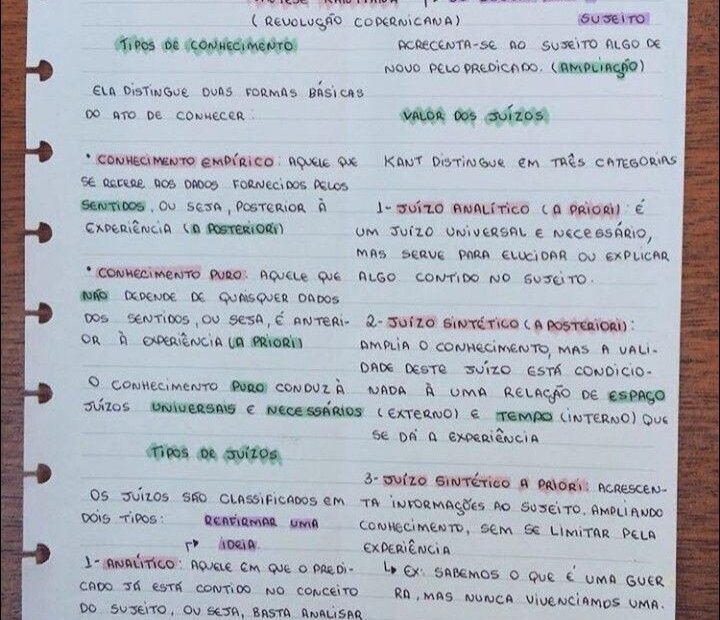 (REVOLUÇÃO COPERNICANA)
TIPOS DE CONHECIMENTO
ELA DISTINGUE DUAS FORMAS BÁSICAS
DO ATO DE CONHECER:
• CONHECIMENTO EMPÍRICO: AQUELE QUE
SE REFERE AOS DADOS FORNECIDOS PELOS
SENTIDOS, OU SEJA, POSTERIOR À
EXPERIÊNCIA (A POSTERIORI)
• CONHECIMENTO PURO: AQUELE QUE
NÃO DEPENDE DE QUAISQUER DADOS
DOS SENTIDOS, OU SEJA, É ANTERI-
OR À EXPERIÊNCIA (A PRIORI)
O CONHECIMENTO PURO CONDUZ À
JUÍZOS UNIVERSAIS E NECESSÁRIOS
TIPOS DE JUÍZOS
OS JUÍZOS SÃO CLASSIFICADOS EM
DOIS TIPOS: REAFIRMAR UMA
IDEIA
1- ANALÍTICO: AQUELE EM QUE O PREDI-
CADO JÁ ESTÁ CONTIDO NO CONCEITO
DO SUJEITO, OU SEJA, BASTA ANALISAR
SUJEITO
ACRECENTA-SE AO SUJEITO ALGO DE
NOVO PELO PREDICADO. (AMPLIAÇÃO)
VALOR DOS JUÍZOS
KANT DISTINGUE EM TRÊS CATEGORIAS
1- JUÍZO ANALÍTICO (A PRIORI): É
UM JUÍZO UNIVERSAL E NECESSÁRIO,
MAS SERVE PARA ELUCIDAR OU EXPLICAR
ALGO CONTIDO NO SUJEITO.
2- JUÍZO SINTÉTICO (A POSTERIORI):
AMPLIA O CONHECIMENTO, MAS A VALI-
DADE DESTE JUÍZO ESTÁ CONDICIO-
NADA À UMA RELAÇÃO DE ESPAÇO
(EXTERNO) E TEMPO (INTERNO) QUE
SE DÁ A EXPERIÊNCIA
3- JUÍZO SINTÉTICO A PRIORI: ACRESCEN-
TA INFORMAÇÕES AO SUJEITO, AMPLIANDO
CONHECIMENTO, SEM SE LIMITAR PELA
EXPERIÊNCIA
↳ EX: SABEMOS O QUE É UMA GUER
RA, MAS NUNCA VIVENCIAMOS UMA.